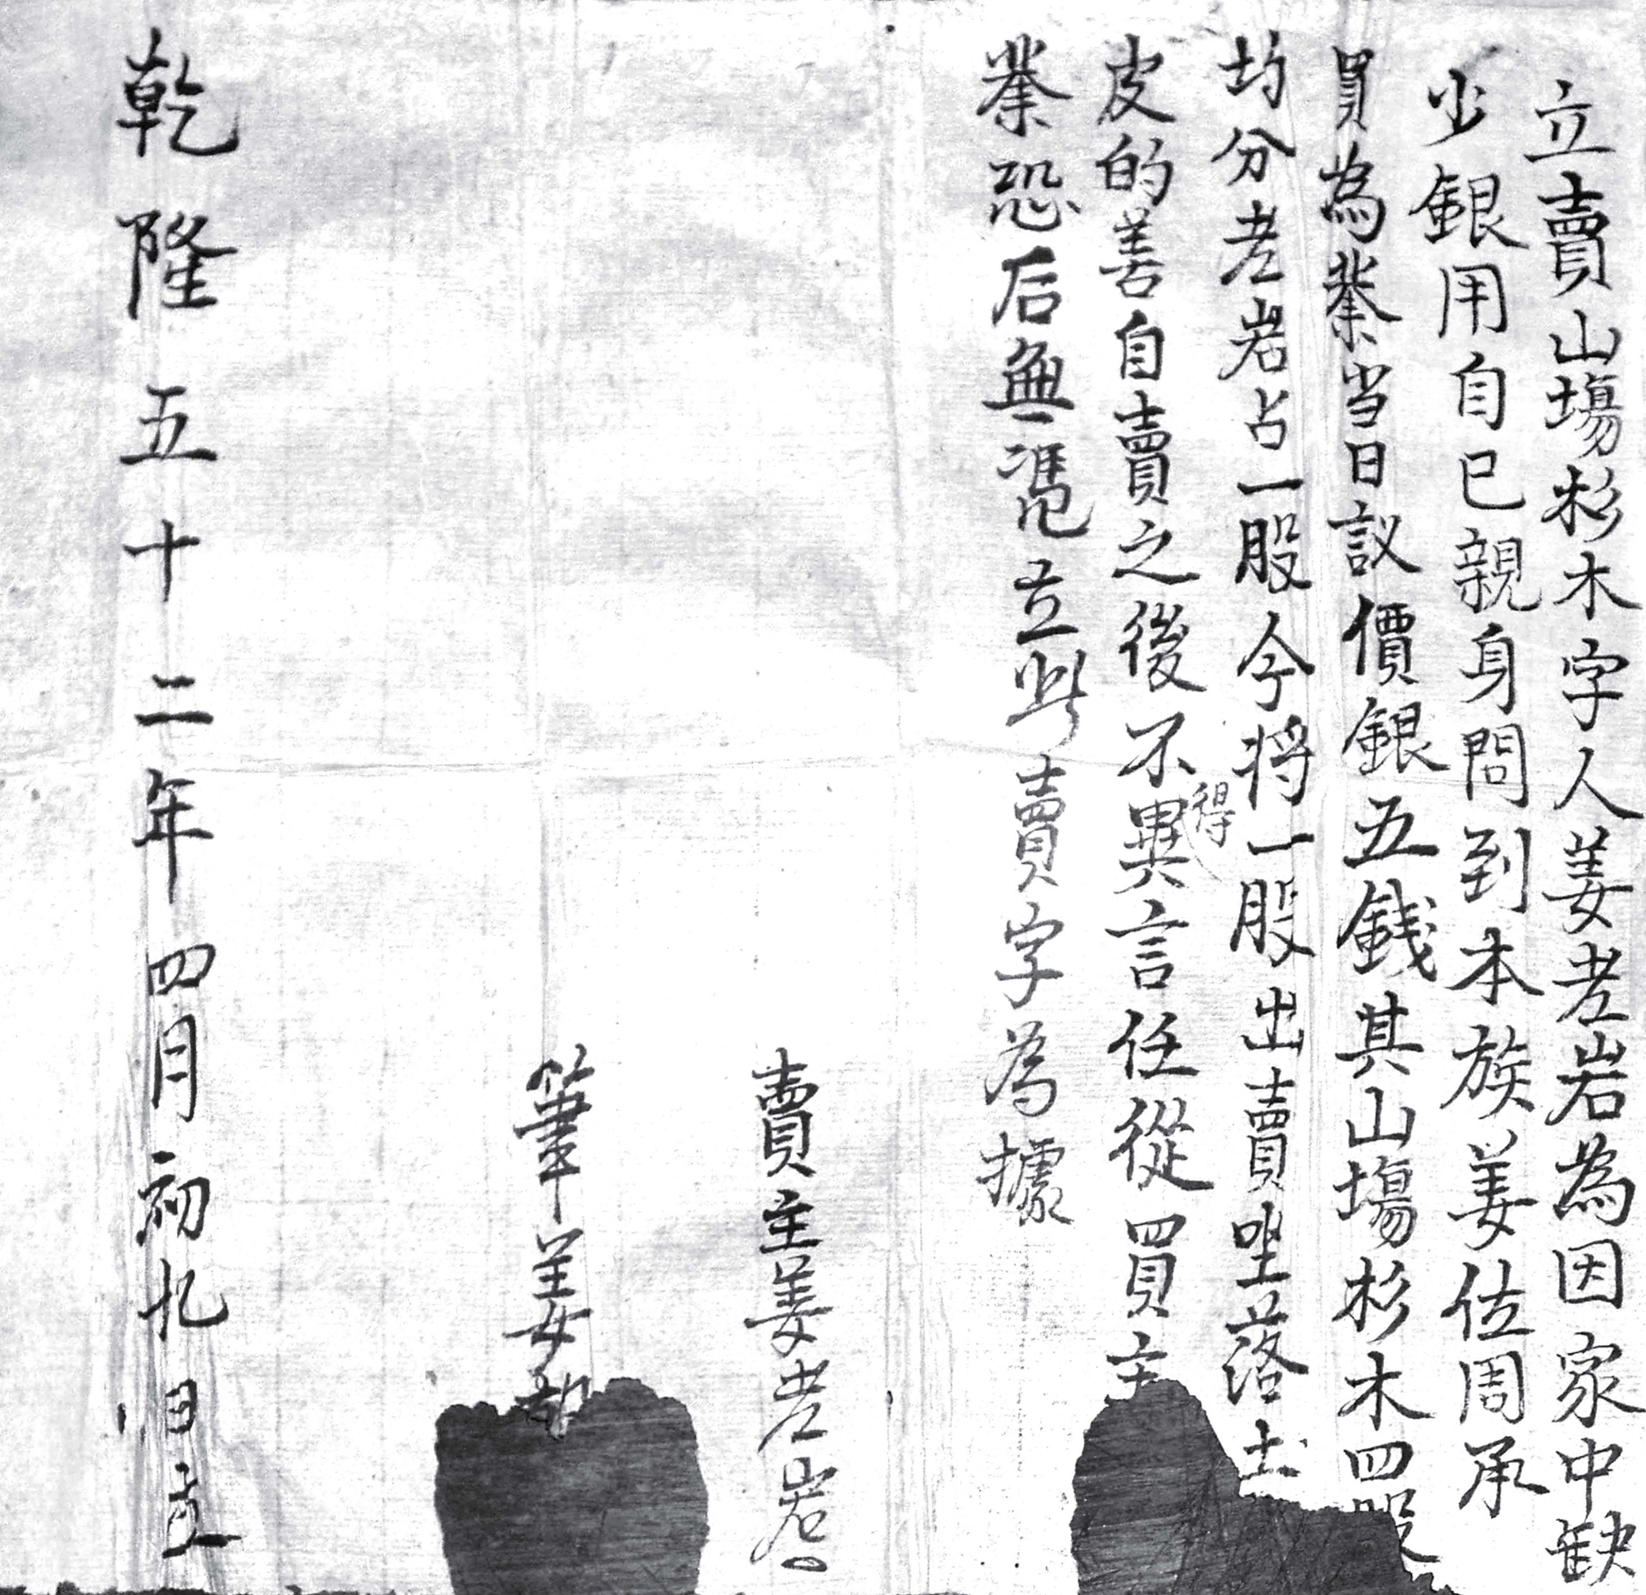 立賣山塲杉木字人姜老岩為因家中缺
少銀用自己親身問到本族姜佐周承
買為業當日議價銀五錢其山塲杉木四股
均分老岩占一股今将一股出賣坐落土
皮的善自賣之後不得異言任從買主
業恐后無憑立此賣字為據
賣主姜老岩
筆姜
乾隆五十二年四月初九日立